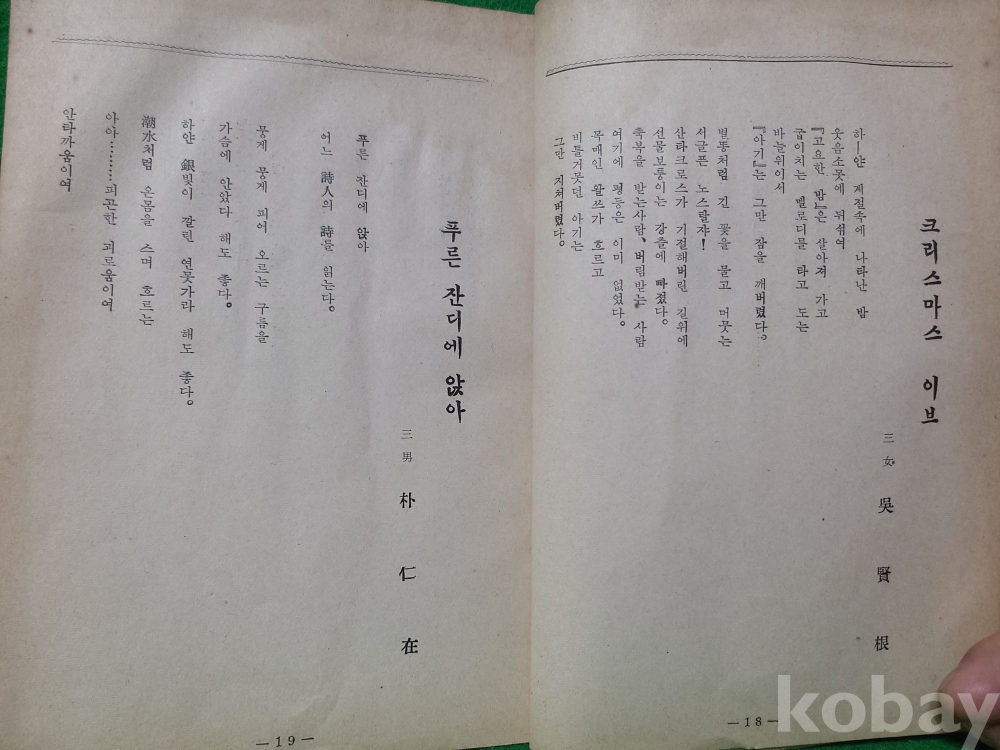 크리스마스 이브
三女 吳賢根
하ー얀 계절속에 나타난 밤
웃음소못에 뒤섬여
『고요한 밤』은 살아져 가고
굽이치는 멜로디를 타고 도는
바늘위이서
『아기』는 그만 잠을 깨버렸다。
별똥처럼 긴 꽃을 물고 머뭇는
서글픈 노스탈쟈!
산타크로스가 기절해버린 길위에
선물보퉁이는 강즐에 빠졌다。
축복을 받는사람、버림받는 사람
여기에 평등은 이미 없었다。
목매인 왈쓰가 흐르고
비틀거못던 아기는
그만 지쳐버렸다。
—18—
푸른 잔디에 앉아
三男 朴仁在
푸른 잔디에 앉아
어느 詩人의 詩를 읽는다。
뭉게 뭉게 피어 오르는 구름을
가슴에 안았다 해도 좋다。
하얀 銀빛이 깔린 연못가라 해도 좋다。
潮水처럼 온몸을 스며 흐르는
아아………피곤한 괴로움이여
안타까움이여
—19—
kobay